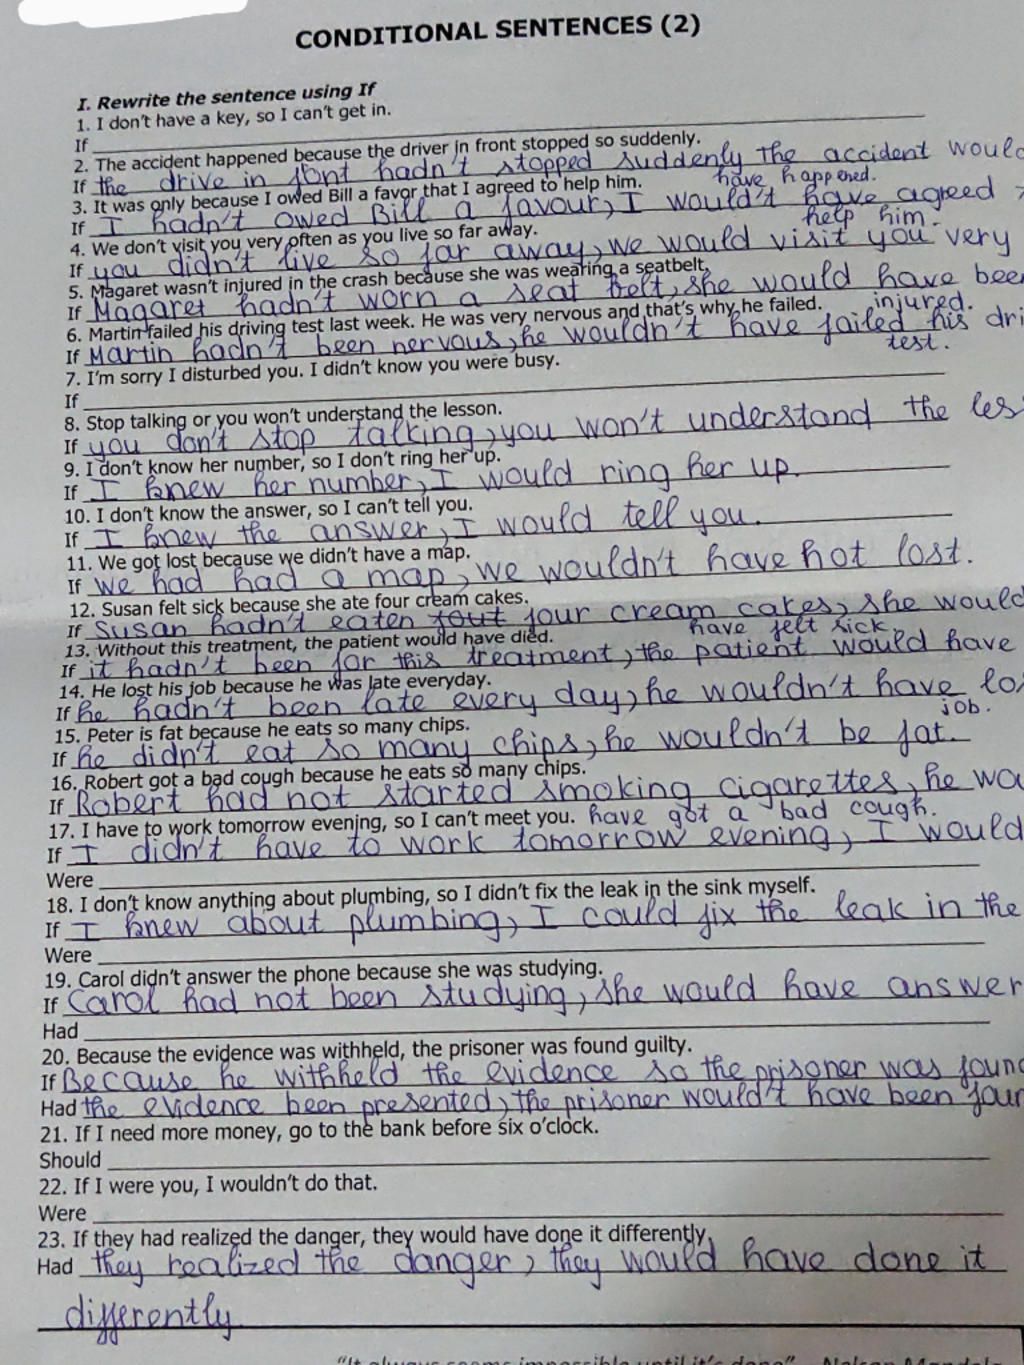 CONDITIONAL SENTENCES (2)
I. Rewrite the sentence using If
1. I don't have a key, so I can't get in.
If
2. The accident happened because the driver in front stopped so suddenly.
If the drive in font hadn't stopped suddenly the accident would
have happened.
3. It was only because I owed Bill a favor that I agreed to help him.
If I hadn't owed Bill a favour, I would't have agreed
help him.
4. We don't visit you very often as you live so far away.
If you didn't live so far away, we would visit you very
5. Magaret wasn't injured in the crash because she was wearing a seatbelt.
If Magaret hadn't worn a seat belt, she would have been
injured.
6. Martin failed his driving test last week. He was very nervous and that's why he failed.
If Martin hadn't been nervous, he wouldn't have failed his dri
test.
7. I'm sorry I disturbed you. I didn't know you were busy.
If
8. Stop talking or you won't understand the lesson.
If you don't stop talking, you won't understand the les
9. I don't know her number, so I don't ring her up.
If I knew her number, I would ring her up.
10. I don't know the answer, so I can't tell you.
If I knew the answer, I would tell you.
11. We got lost because we didn't have a map.
If we had had a map, we wouldn't have hot lost.
12. Susan felt sick because she ate four cream cakes.
If Susan hadn't eaten fout four cream cakes, she would
have felt sick
13. Without this treatment, the patient would have died.
If it hadn't been for this treatment, the patient would have
14. He lost his job because he was late everyday.
If he hadn't been late every day, he wouldn't have los
job.
15. Peter is fat because he eats so many chips.
If he didn't eat so many chips, he wouldn't be fat.
16. Robert got a bad cough because he eats so many chips.
If Robert had not started smoking cigarettes, he wou
have got a bad cough.
17. I have to work tomorrow evening, so I can't meet you.
If I didn't have to work tomorrow evening, I would
Were
18. I don't know anything about plumbing, so I didn't fix the leak in the sink myself.
If I knew about plumbing, I could fix the leak in the
Were
19. Carol didn't answer the phone because she was studying.
If Carol had not been studying, she would have answer
Had
20. Because the evidence was withheld, the prisoner was found guilty.
If Because he withheld the evidence so the prisoner was found
Had the evidence been presented, the prisoner would't have been foun
21. If I need more money, go to the bank before six o'clock.
Should
22. If I were you, I wouldn't do that.
Were
23. If they had realized the danger, they would have done it differently.
Had they realized the danger, they would have done it
differently